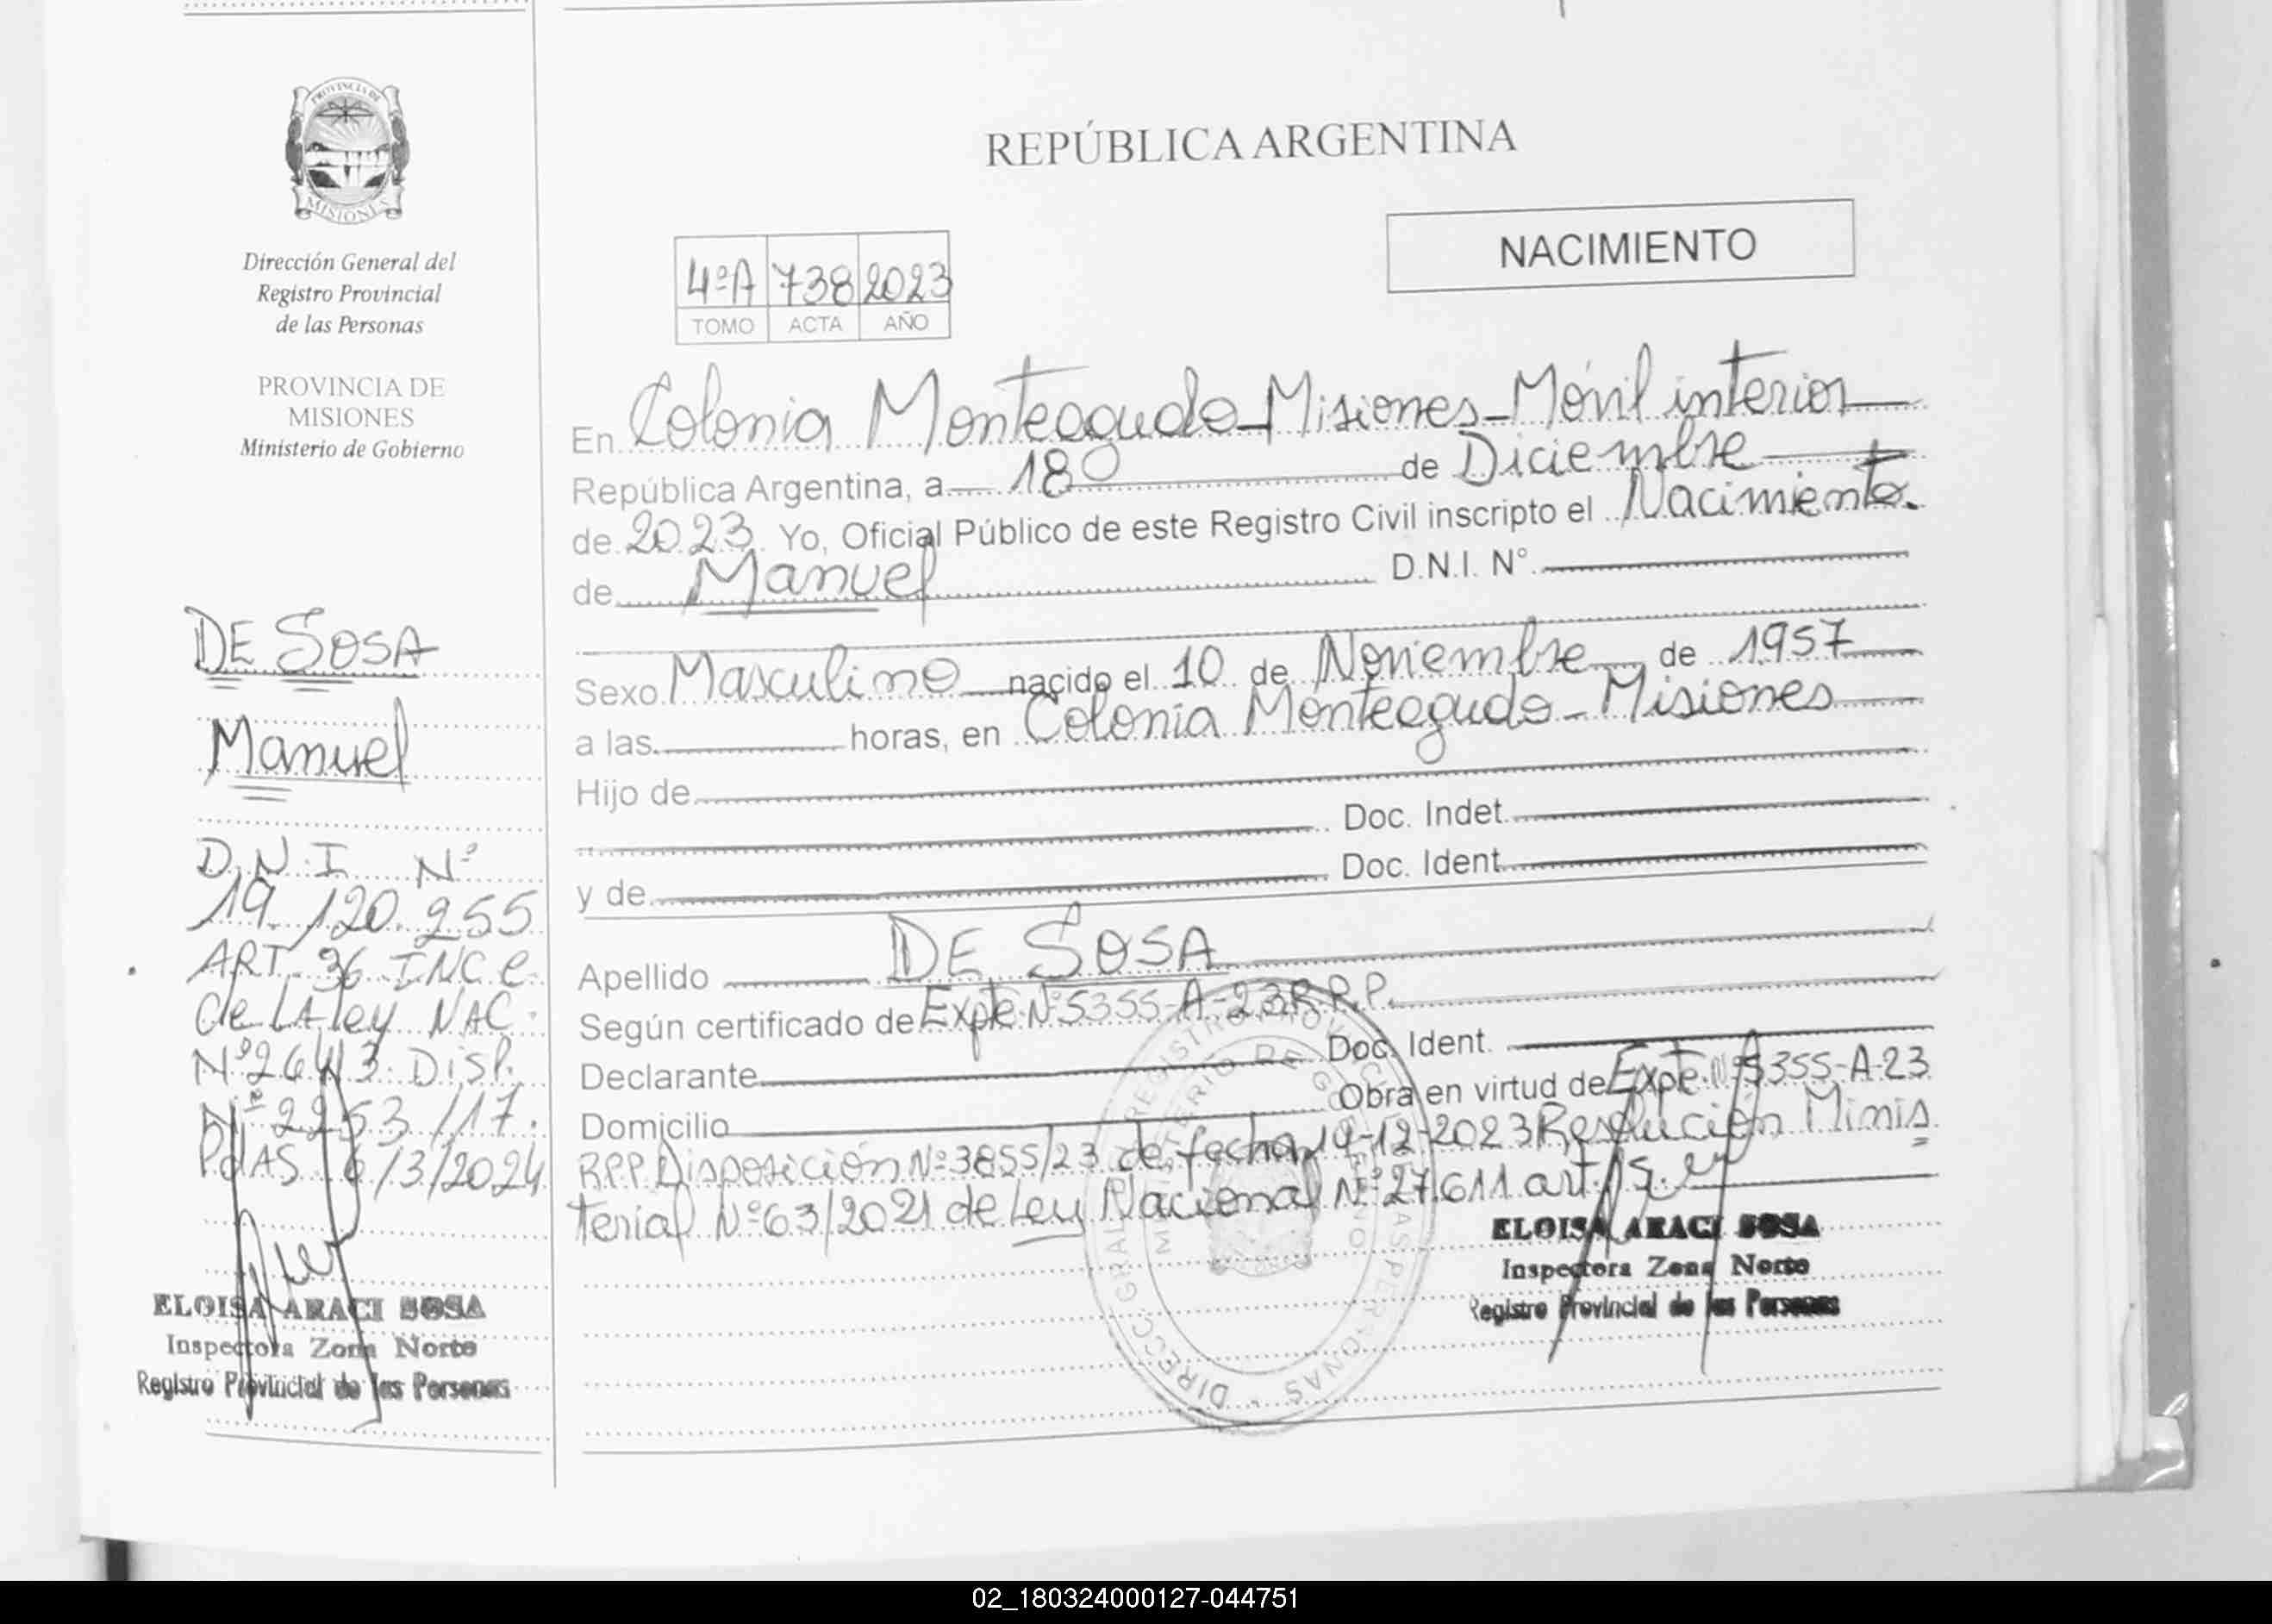 PROVINCIA DE
MISIONES
Dirección General del
Registro Provincial
de las Personas
PROVINCIA DE
MISIONES
Ministerio de Gobierno
DE SOSA
Manuel
D.N.I. Nº
19.120.955
ART. 36 INC e
de LA ley NAC.
Nº 26413. Disp.
Nº 2253/17.
Pdas 6/3/2024
ELOISA ARACI SOSA
Inspectora Zona Norte
Registro Provincial de las Personas
REPÚBLICA ARGENTINA
NACIMIENTO
4ºA 738 2023
TOMO ACTA AÑO
En Colonia Monteagudo-Misiones-Móvil interior
República Argentina, a 18 de Diciembre
de 2023. Yo, Oficial Público de este Registro Civil inscripto el Nacimiento.
de Manuel D.N.I. N°
Sexo Masculino nacido el 10 de Noviembre de 1957
a las horas, en Colonia Monteagudo - Misiones
Hijo de
Doc. Indet.
y de Doc. Ident.
Apellido DE SOSA
Según certificado de Expte Nº 5355-A-23 R.P.P.
Declarante Doc. Ident.
Domicilio Obra en virtud de Expte. Nº 5355-A-23
RPP. Disposición Nº 3855/23 de fecha 14-12-2023 Resolución Minis
terial Nº 63/2021 de Ley Nacional Nº 27.611 art.
ELOISA ARACI SOSA
Inspectora Zona Norte
Registro Provincial de las Personas
02_180324000127-044751